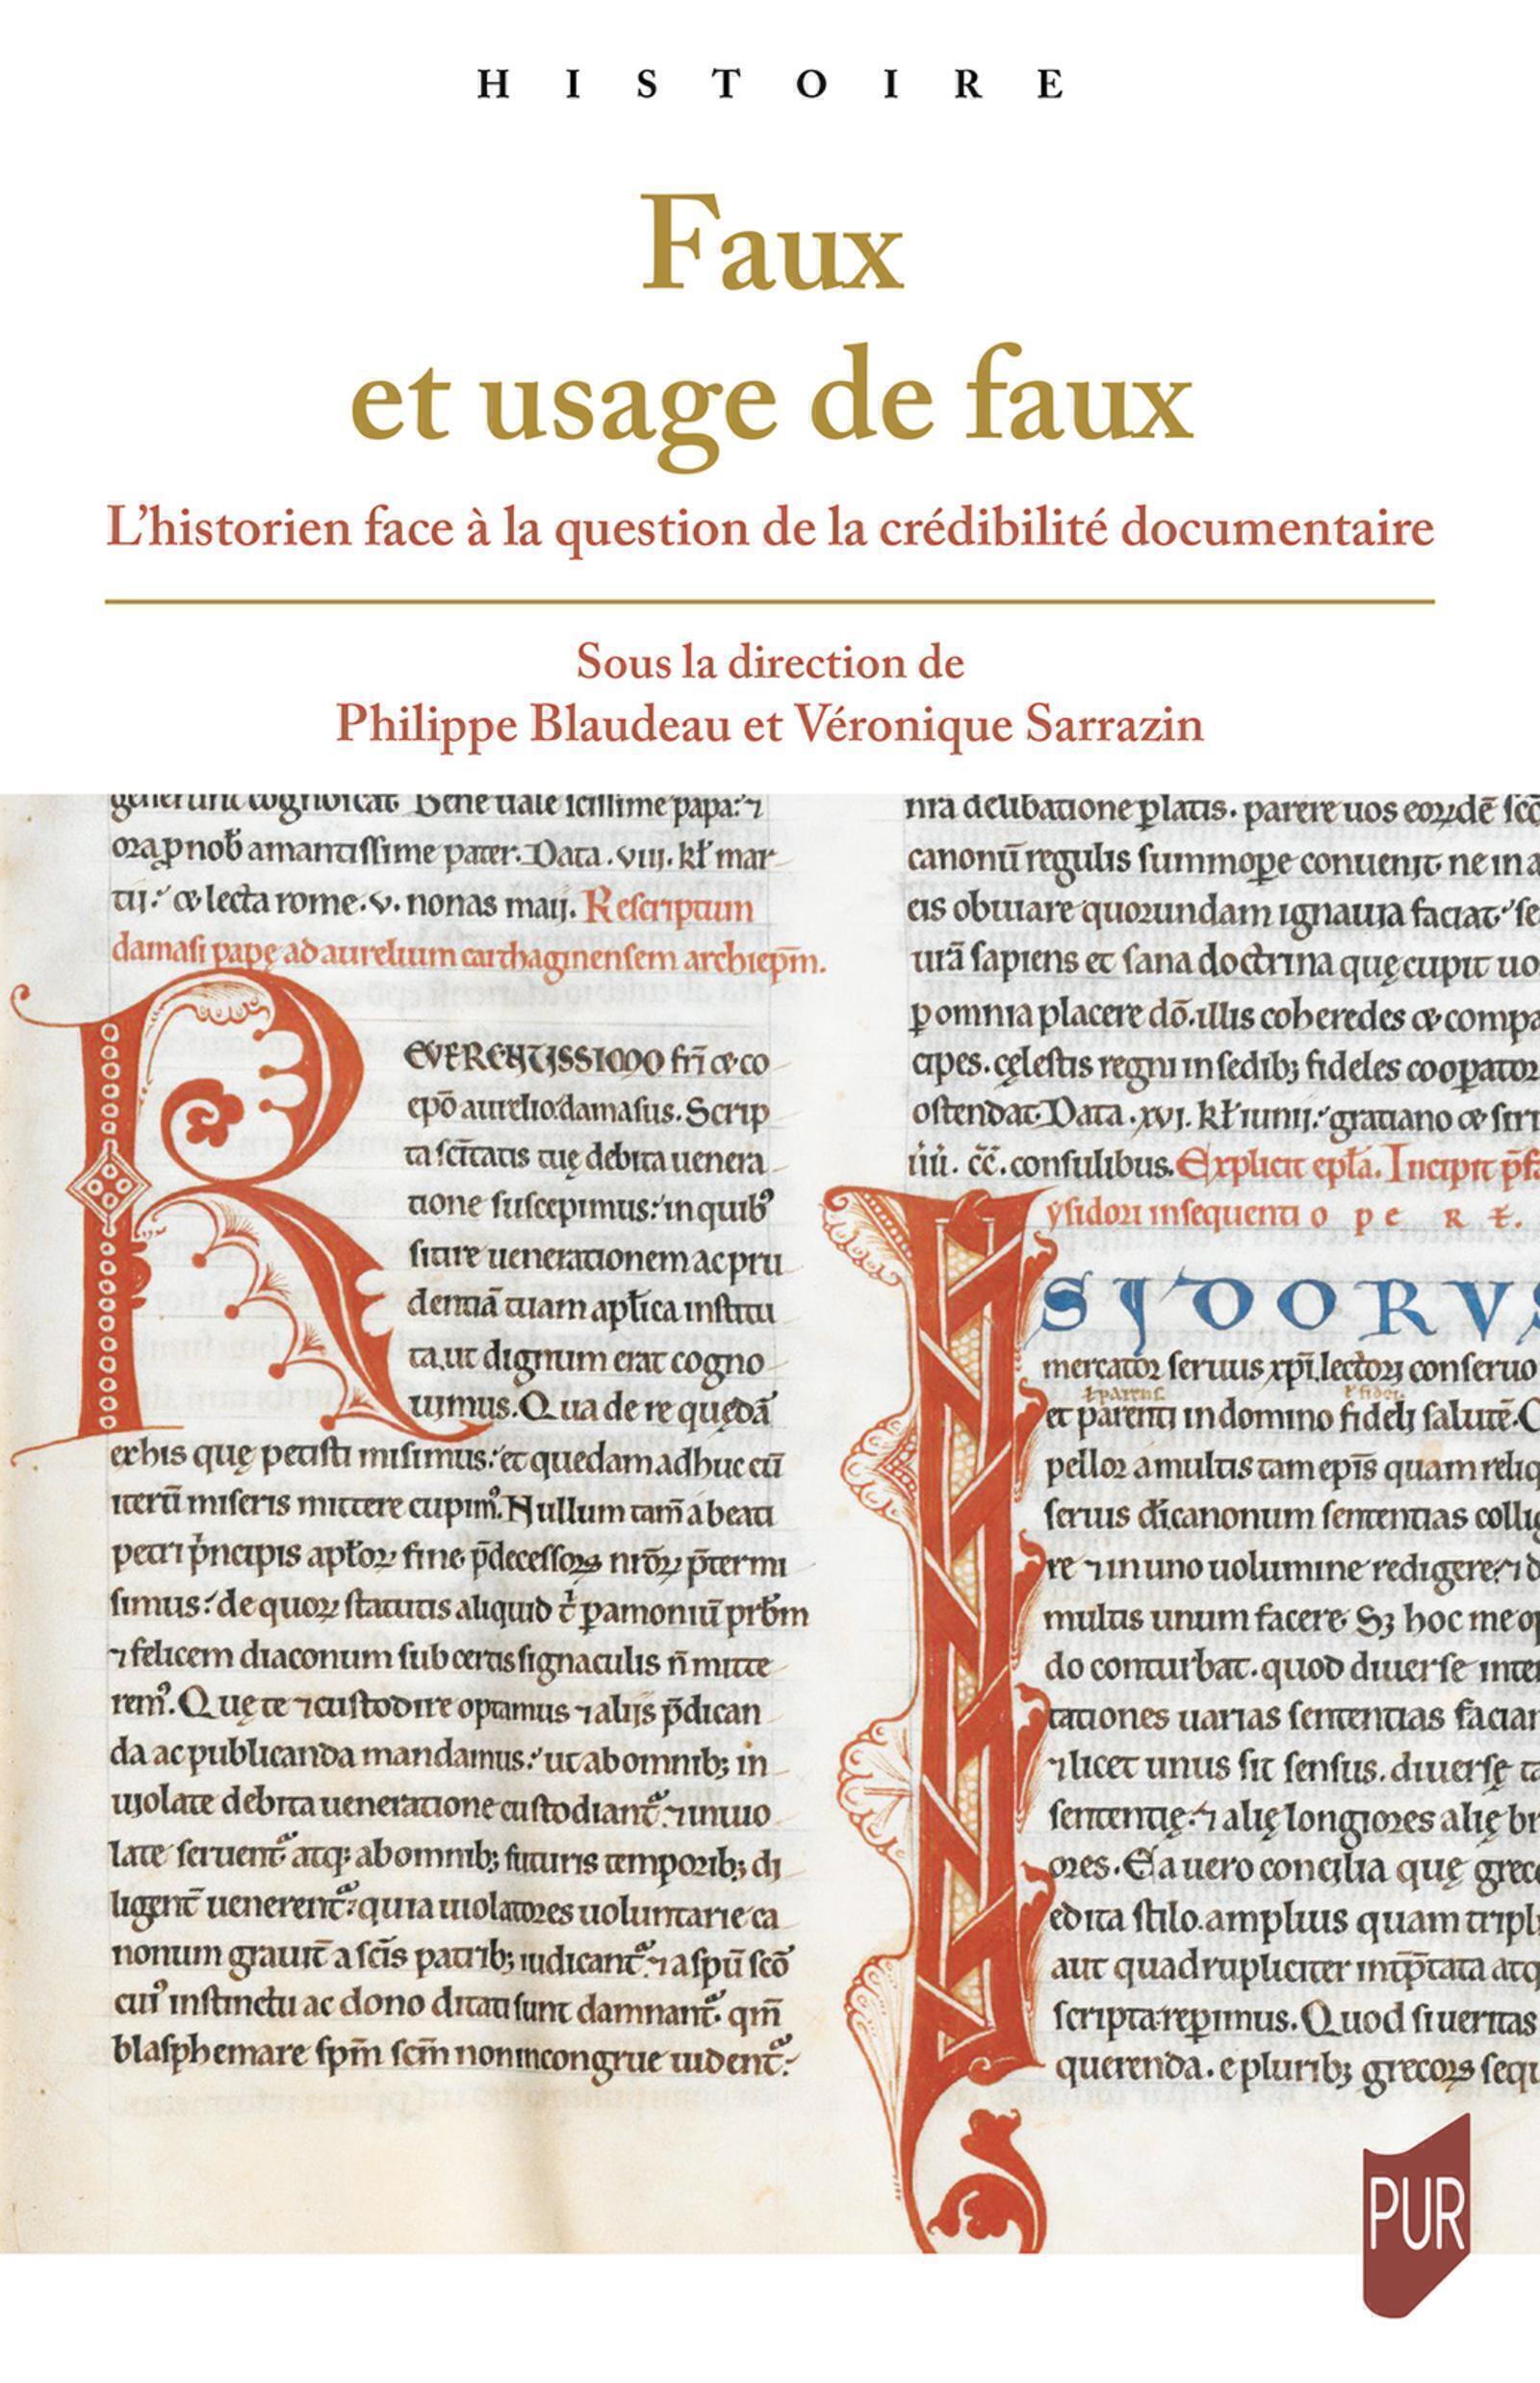 HISTOIRE
Faux
et usage de faux
L'historien face à la question de la crédibilité documentaire
Sous la direction de
Philippe Blaudeau et Véronique Sarrazin
papa:
amantissime pater. Data . viij. kł mar
tij: lecta rome. v. nonas maij. Rescriptum
damasi papę ad aurelium carthaginensem archiepm̄.
REVERENTISSIMO fr̄i & co
ep̄o aurelio damasus. Scrip
ta sc̄itatis tuę debita uenera
tione suscepimus: in quib9
sitire uenerationem ac pru
dentiā tuam aplica institu
ta, ut dignum erat cogno
uimus. Qua de re quędā
ex his quę petisti misimus: et quedam adhuc cū
iterū miseris mittere cupim9. Nullum tam̄ a beati
petri
simus: de quoꝝ statutis aliquid
⁊ felicem diaconum sub certis signaculis n̄ mitte
rem9. Quę te ⁊ custodire optamus ⁊ alijs p̄dican
da ac publicanda mandamus: ut ab omnib; in
uiolate debita ueneratione custodiant
late seruent atq; ab omnib; futuris temporib; di
ligent uenerent quia uiolatores uoluntarie ca
nonum grauit a sc̄is patrib; iudicant ⁊ a spū sc̄o
cui9 instinctu ac dono ditati sunt damnant qm̄
blasphemare spm̄ scm̄ non incongrue uident
parere uos
canonū regulis summope conuenit ne in a
eis obuiare quorundam ignauia faciat
urā sapiens et sana doctrina quę cupit uo
p omnia placere dō. illis coheredes & compa
cipes. cęlestis regni in sedib; fideles
ostendat. Data . xvj. kł iunij. gratiano &
iiii. c̄c̄. consulibus. Explicit epła. Incipit
ysidori in sequenti o p e R
ISIDORVS
mercator seruus xp̄i, lectori conseruo
et parenti in domino fideli salutē.
pellor a multis tam ep̄is quam reliq
seruis canonum sententias
re ⁊ in uno uolumine redigere
multis unum facere. hoc me
do conturbat. quod diuerse inter
tationes uarias sententias
⁊ licet unus sit sensus. diuerse
sententię: ⁊ alię longiores alię br
ores. Ea uero concilia quę
edita stilo. amplius quam tripl
aut quadrupliciter
scripta repimus. Quod si ueritas
querenda. e plurib;
PUR